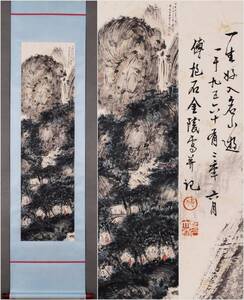 一生好入名山遊
一千九百六十有年 六月
傅抱石金陵寫并記